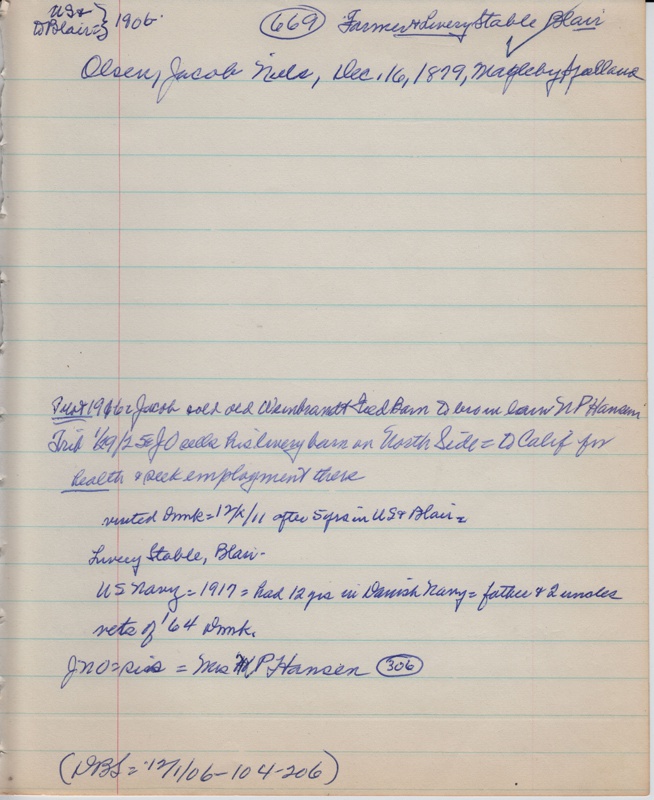 US & } 1906. 669 Farmer & Livery Stable Blair
to Blair = }
Olsen, Jacob Niels, Dec. 16, 1879, Magleby Sjælland
Pilot 1916 = Jacob sold old Feed Barn to bro in law N P Hansen
Trib 1/29/25 = JO sells his livery barn on North Side = to Calif for
health & seek employment there
visited Dmk = 12/ /11 after 5 yrs in US & Blair =
Livery Stable, Blair -
US Navy = 1917 = had 12 yrs in Danish Navy = father & 2 uncles
vets of '64 Dmk.
JNO = sis = Mrs N P Hansen 306
(DBS = 12/1/06 - 104 - 206)